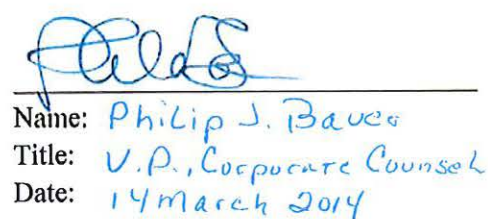 Name: Philip J. Bauer
Title: V.P., Corporate Counsel
Date: 14 March 2014